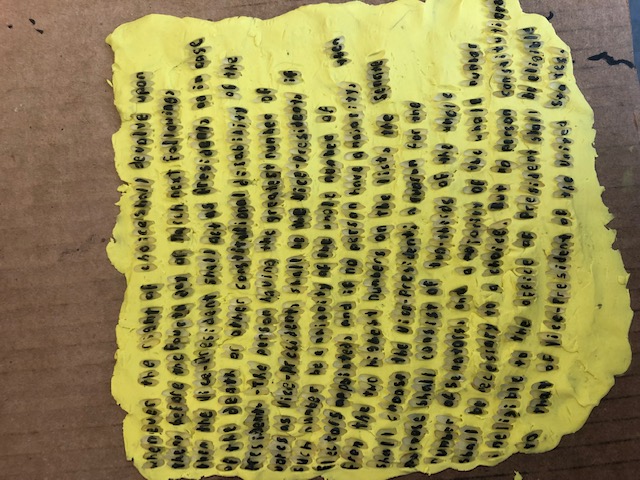 whenever the right of choice shall devolve upon
them before the fourth day of March next following,
then the Vice-President shall act as President, as in case
of the death or other constitutional disability of the
President- The person having the greatest number of
votes as Vice-President, shall be the Vice-President, if
such number be a majority of the whole number of
Electors appointed, and if no person have a majority, then
from the two highest numbers on the list, the Senate
shall choose the Vice-President; a quorum for the
purpose shall consist of of the whole
number of Senators, and a majority of the whole number
shall be necessary to a choice. But no person constitutionally
ineligible to the office of President shall be eligible
to that of Vice-President of the United States